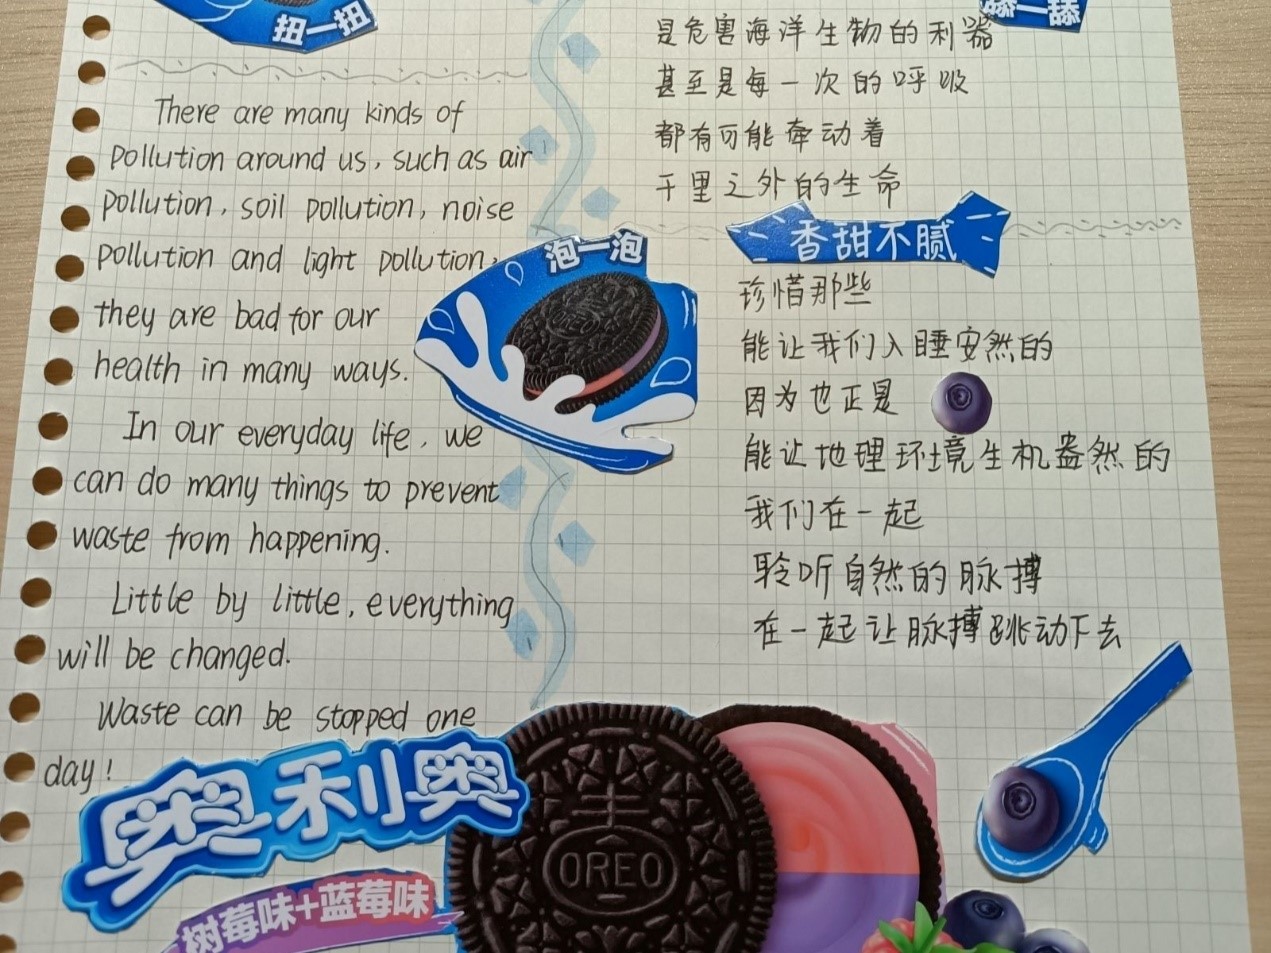 扭一扭
There are many kinds of
pollution around us, such as air
pollution, soil pollution, noise
pollution and light pollution,
they are bad for our
health in many ways.
In our everyday life, we
can do many things to prevent
waste from happening.
Little by little, everything
will be changed.
Waste can be stopped one
day!
舔一舔
是危害海洋生物的利器
甚至是每一次的呼吸
都有可能牵动着
千里之外的生命
香甜不腻
珍惜那些
能让我们入睡安然的
因为也正是
能让地理环境生机盎然的
我们在一起
聆听自然的脉搏
在一起让脉搏跳动下去
泡一泡
奥利奥
OREO
树莓味+蓝莓味